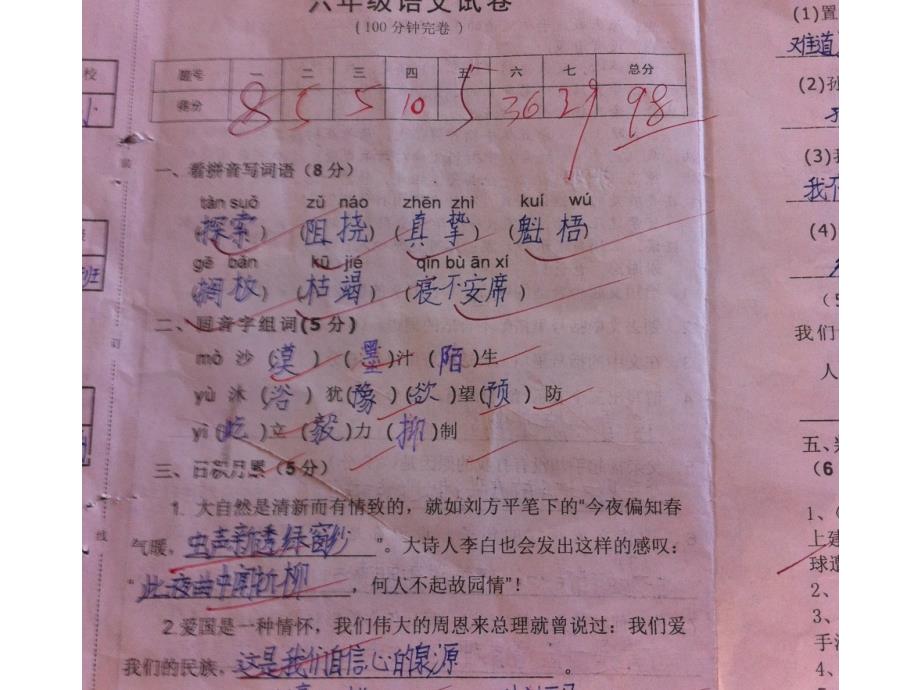 六年级语文试卷
（100分钟完卷）
题号 一 二 三 四 五 六 七 总分
得分 8 5 5 10 5 36 29 98
一、看拼音写词语（8分）
tàn suǒ zǔ náo zhēn zhì kuí wú
(探索) (阻挠) (真挚) (魁梧)
gē bǎn kū jié qǐn bù ān xí
(搁板) (枯竭) (寝不安席)
二、同音字组词(5分)
mò 沙(漠) (墨)汁 (陌)生
yù 沐(浴) 犹(豫) (欲)望 (预)防
yì (屹)立 (毅)力 (抑)制
三、日积月累（5分）
1. 大自然是清新而有情致的，就如刘方平笔下的“今夜偏知春
气暖，虫声新透绿窗纱”。大诗人李白也会发出这样的感叹：
“此夜曲中闻折柳，何人不起故园情”！
2.爱国是一种情怀，我们伟大的周恩来总理就曾说过：我们爱
我们的民族，这是我们自信心的泉源。
校
小
装
班
订
线
(1)置
难道
(2)孙
(3)我
我不
(4)
（5
我们
人
五、判
（6
1、
上建
球遗
2、
3、
手法
4、